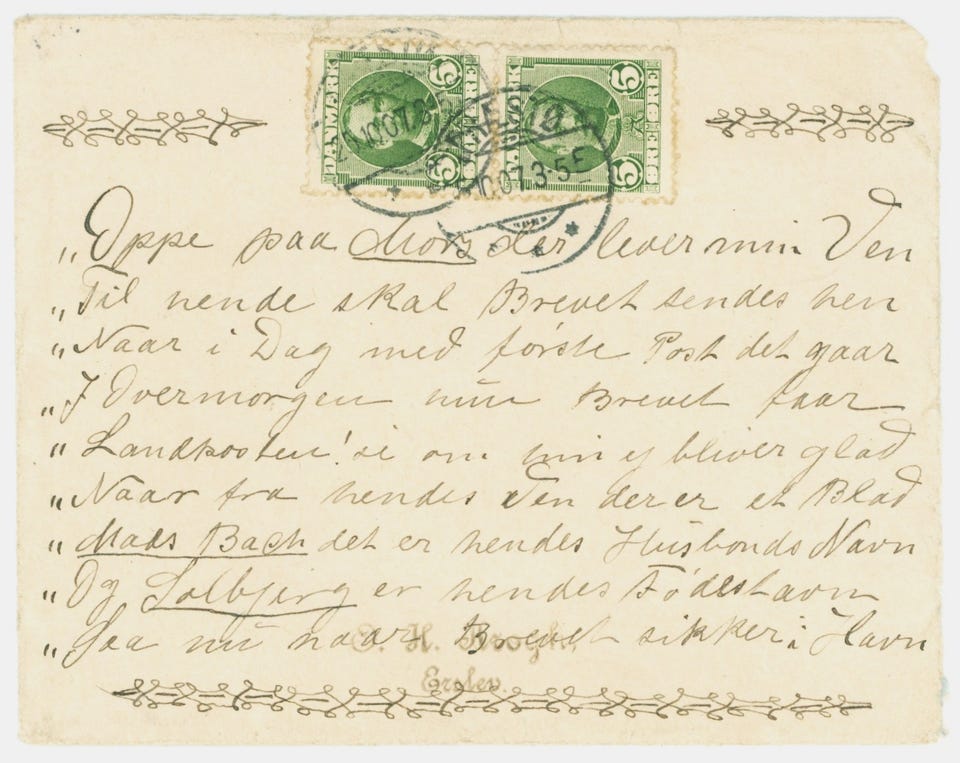 DANMARK 5 5 ØRE
DANMARK 5 5 ØRE ØRE
10.07. 3-5E
„Oppe paa Mors der lever min Ven
„Til hende skal Brevet sendes hen
„Naar i Dag med förste Post det gaar
„I Overmorgen hun Brevet faar
„Landposten! se om hun ej bliver glad
„Naar fra hendes Ven der er et Blad
„Mads Bach det er hendes Husbonds Navn
„Og Solbjerg er hendes Födestavn
„Saa nu naar Brevet sikker i Havn
H. Krogh.
Erslev.